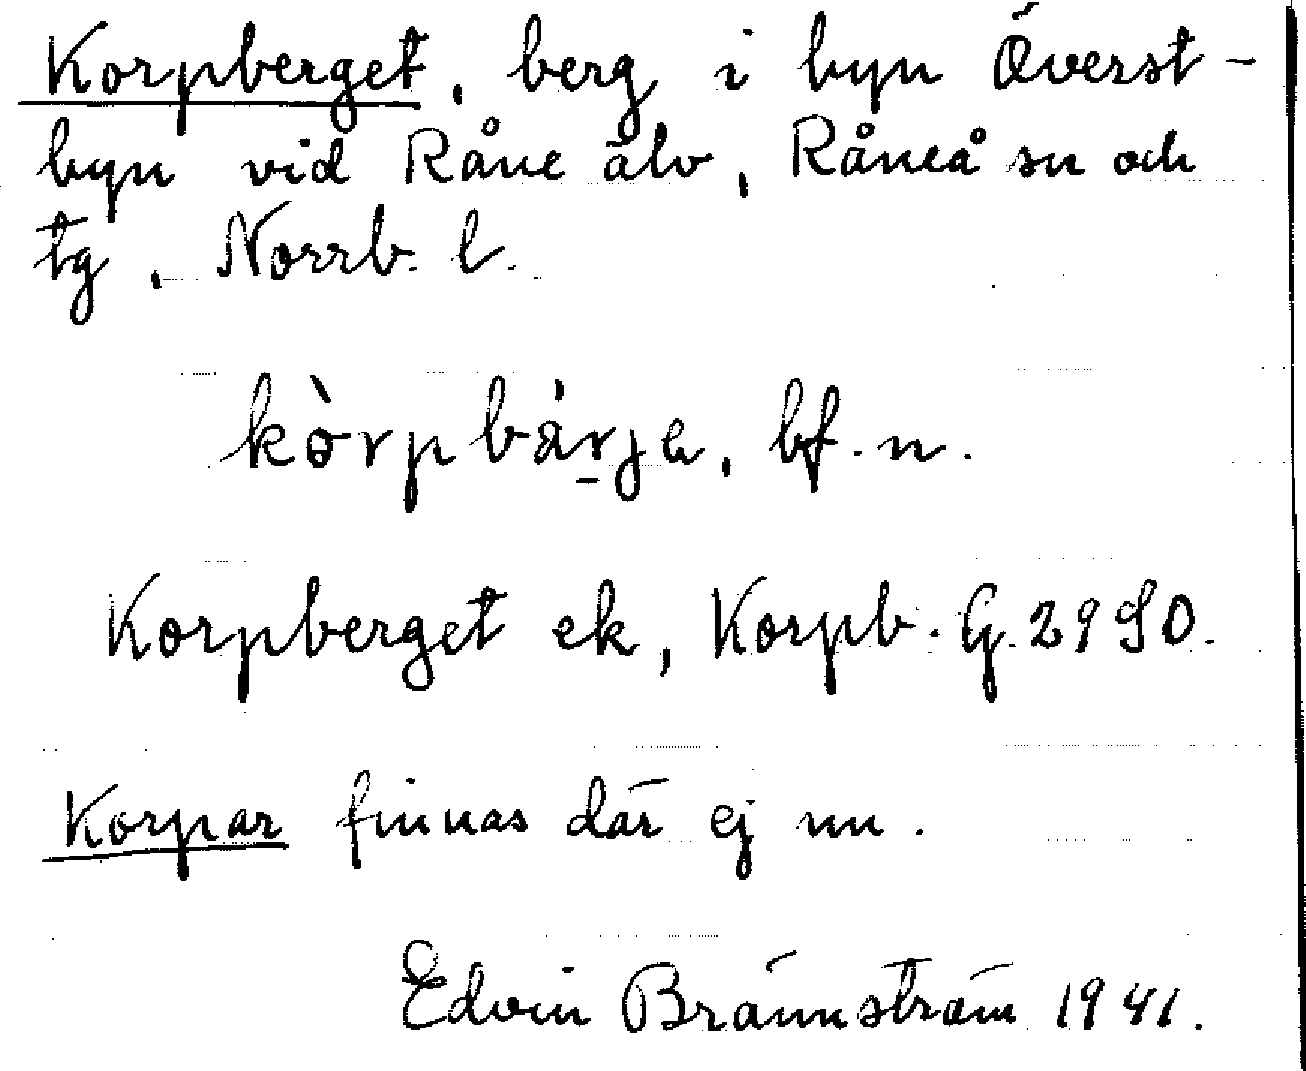 Korpberget, berg i byn Överst-
byn vid Råne älv, Råneå sn och
tg, Norrb. l.
kòrpbá̈rje, bf. n.
Korpberget ek, Korpb. G. 2950.
Korpar finnas där ej nu.
Edvin Brännström 1941.